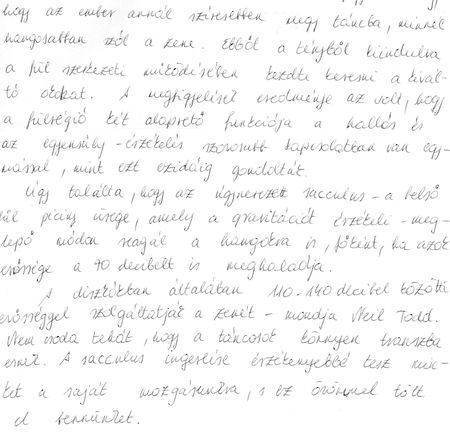 hogy az ember annál szívesebben megy táncba, minnél
hangosabban szól a zene. Ebből a tényből kiindulva
a fül szerkezeti működésében kezdte keresni a kivál-
tó okokat. A megfigyelései eredménye az volt, hogy
a fülrégió két alapvető funkciója a hallás és
az egyensúly-érzékelés szorosabb kapcsolatban van egy-
mással, mint ezt ezidáig gondolták.
Úgy találta, hogy az úgynevezett sacculus - a belső
fül piciny ürege, amely a gravitációt érzékeli - meg-
lepő módon reagál a hangokra is, főként, ha azok
erőssége a 90 decibelt is meghaladja.
A diszkókban általában 110-140 decibel közötti
erősséggel szolgáltatják a zenét - mondja Neil Todd.
Nem csoda tehát, hogy a táncosok könnyen transzba
esnek. A sacculus ingerlése érzékenyebbé tesz min-
ket a saját mozgásunkra, s ez örömmel tölt
el bennünket.